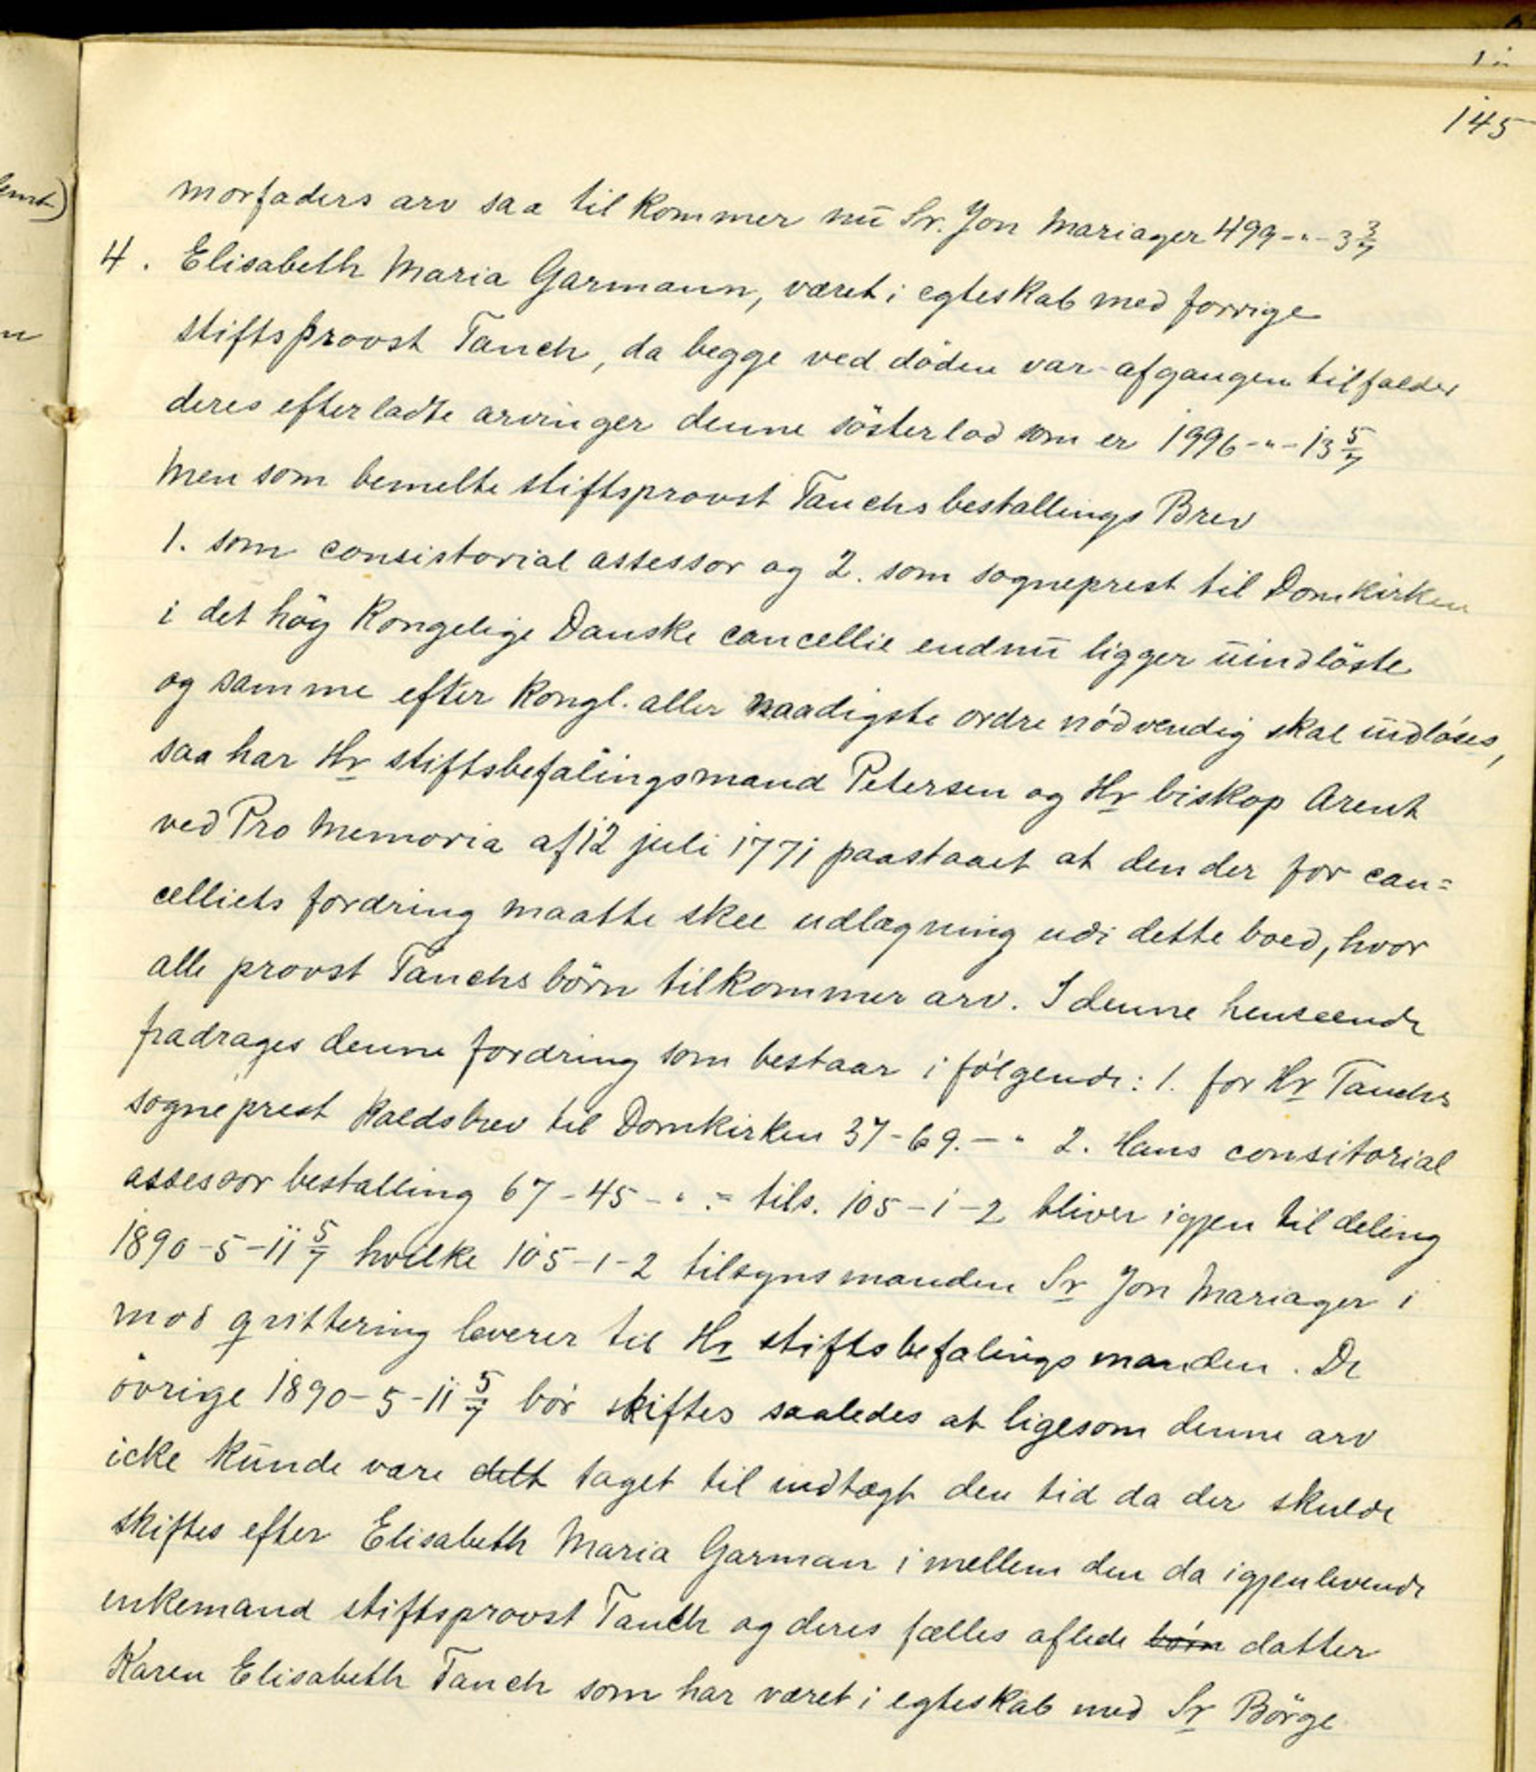 145
morfaders arv saa tilkommer nū Sr. Jon Mariager 499-"-3 3/7
4. Elisabeth Maria Garmann, været i egteskab med forrige
stiftsprovst Tanch, da begge ved döden var afgangen tilfalder
deres efterladte arvinger denne søsterlod som er 1996-"-13 5/7
Men som bemelte stiftsprovst Tanchs bestallings Brev
1. som consistorial assessor og 2. som sogneprest til Domkirken
i det höy Kongelige Danske cancellie endnū ligger ūindlöste
og samme efter Kongl. aller naadigste ordre nödvendig skal ūdlöses,
saa har Hr stiftsbefalingsmand Petersen og Hr biskop Arent
ved Pro Memoria af 12 juli 1771 paastaaet at den der for can=
celliets fordring maatte skee udlægning udi dette boed, hvor
alle provst Tanchs börn tilkommer arv. I denne henseende
fradrages denne fordring som bestaar i fölgende: 1. for Hr Tanchs
sogneprest Kaldsbrev til Domkirken 37-69.-" 2. Hans consitorial
assessor bestalling 67-45-" .= tils. 105-1-2 bliver igjen til deling
1890-5-11 5/7 hvilke 105-1-2 tilsynsmanden Sr Jon Mariager i
mod qvittering leverer til Hr stiftsbefalingsmanden. De
övrige 1890-5-11 5/7 bör skiftes saaledes at ligesom denne arv
icke Kūnde være delt taget til indtægt den tid da der skulde
skiftes efter Elisabeth Maria Garman i mellem den da igjenlevende
enkemand stiftsprovst Tanch og deres fælles aflede börn datter
Karen Elisabeth Tanch som har været i egteskab med Sr Börge